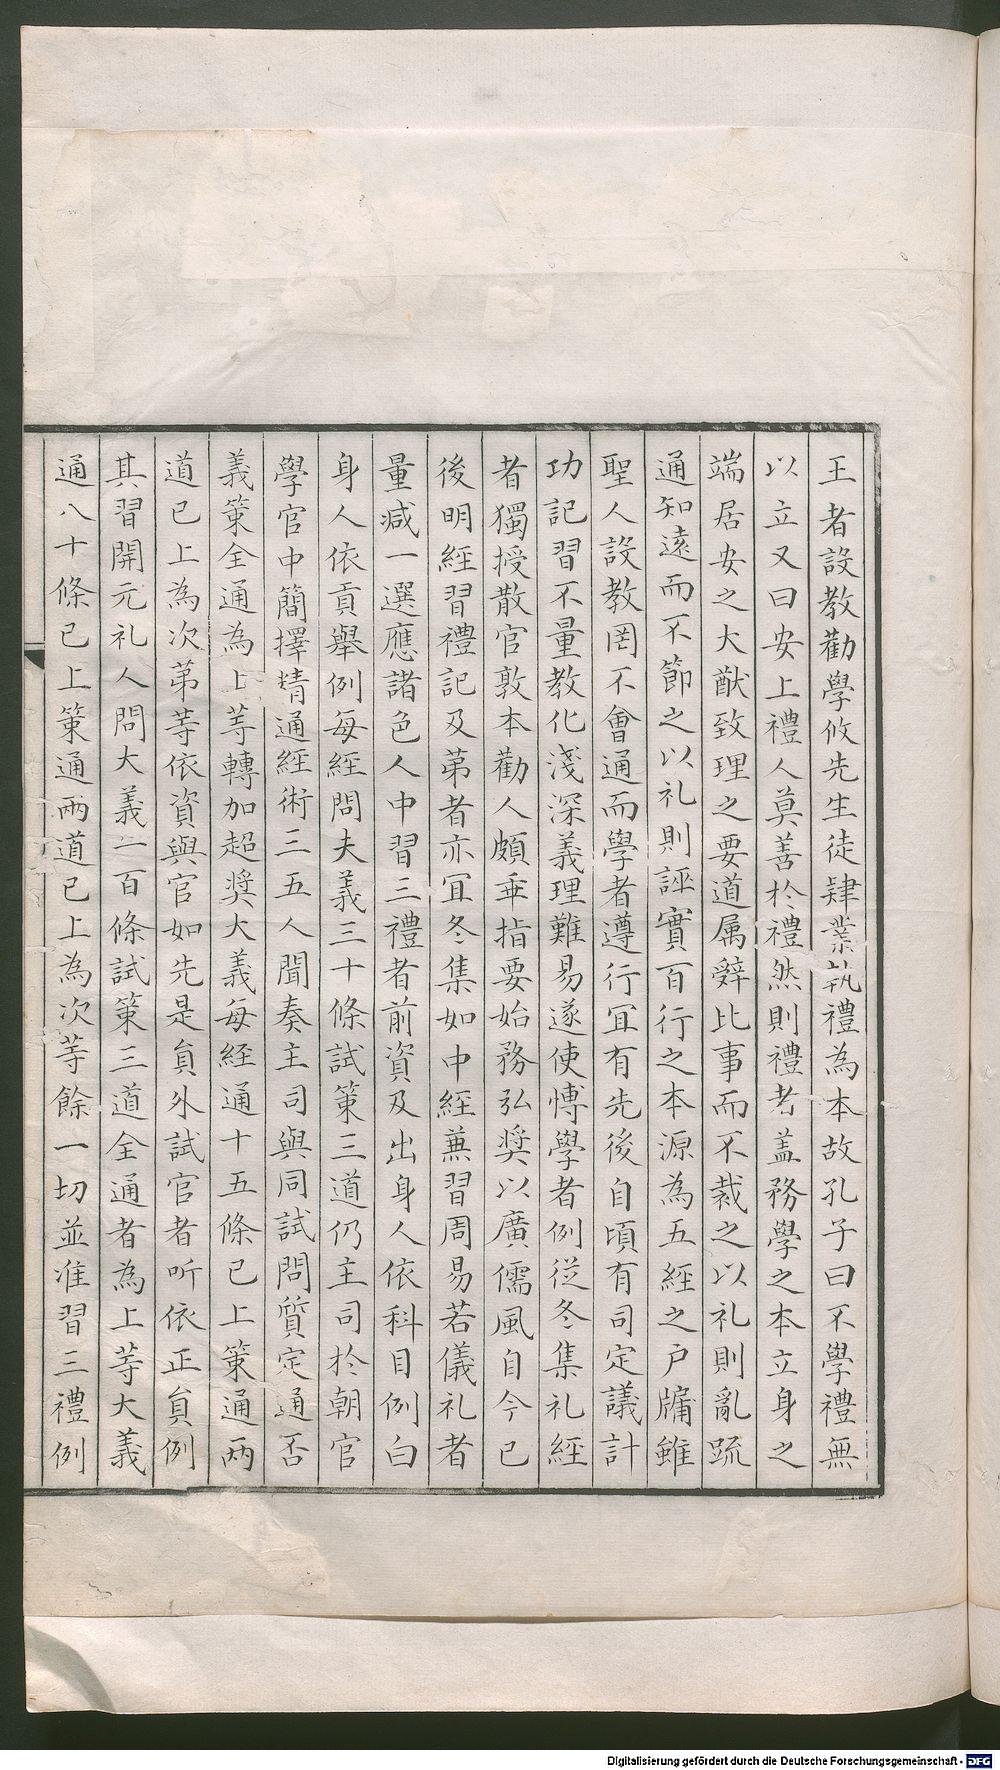 王者設教勸學攸先生徒肄業執禮為本故孔子曰不學禮無
以立又曰安上禮人莫善於禮然則禮者盖務學之本立身之
端居安之大猷致理之要道属辭比事而不裁之以礼則亂疏
通知遠而不節之以礼則誣實百行之本源為五經之户牖雖
聖人設教罔不會通而學者遵行冝有先後自頃有司定議計
功記習不量教化淺深義理難易遂使愽學者例従冬集礼經
者獨授散官敦本勸人頗乖指要始務弘奨以廣儒風自今已
後明經習禮記及苐者亦冝冬集如中經蕪習周易若儀礼者
量减一選應諸色人中習三禮者前資及出身人依科目例白
身人依貢舉例每經問夫義三十條試䇿三道仍主司於朝官
學官中簡擇精通經術三五人聞奏主司與同試問質定通否
義䇿全通為上䓁轉加超奨大義每経通十五條已上䇿通兩
道已上為次苐䓁依資與官如先是負外試官者听依正負例
其習開元礼人問大義一百條試䇿三道全通者為上䓁大義
通八十條已上䇿通兩道已上為次䓁餘一切並准習三禮例
Digitalisierung gefördert durch die Deutsche Forschungsgemeinschaft - DFG